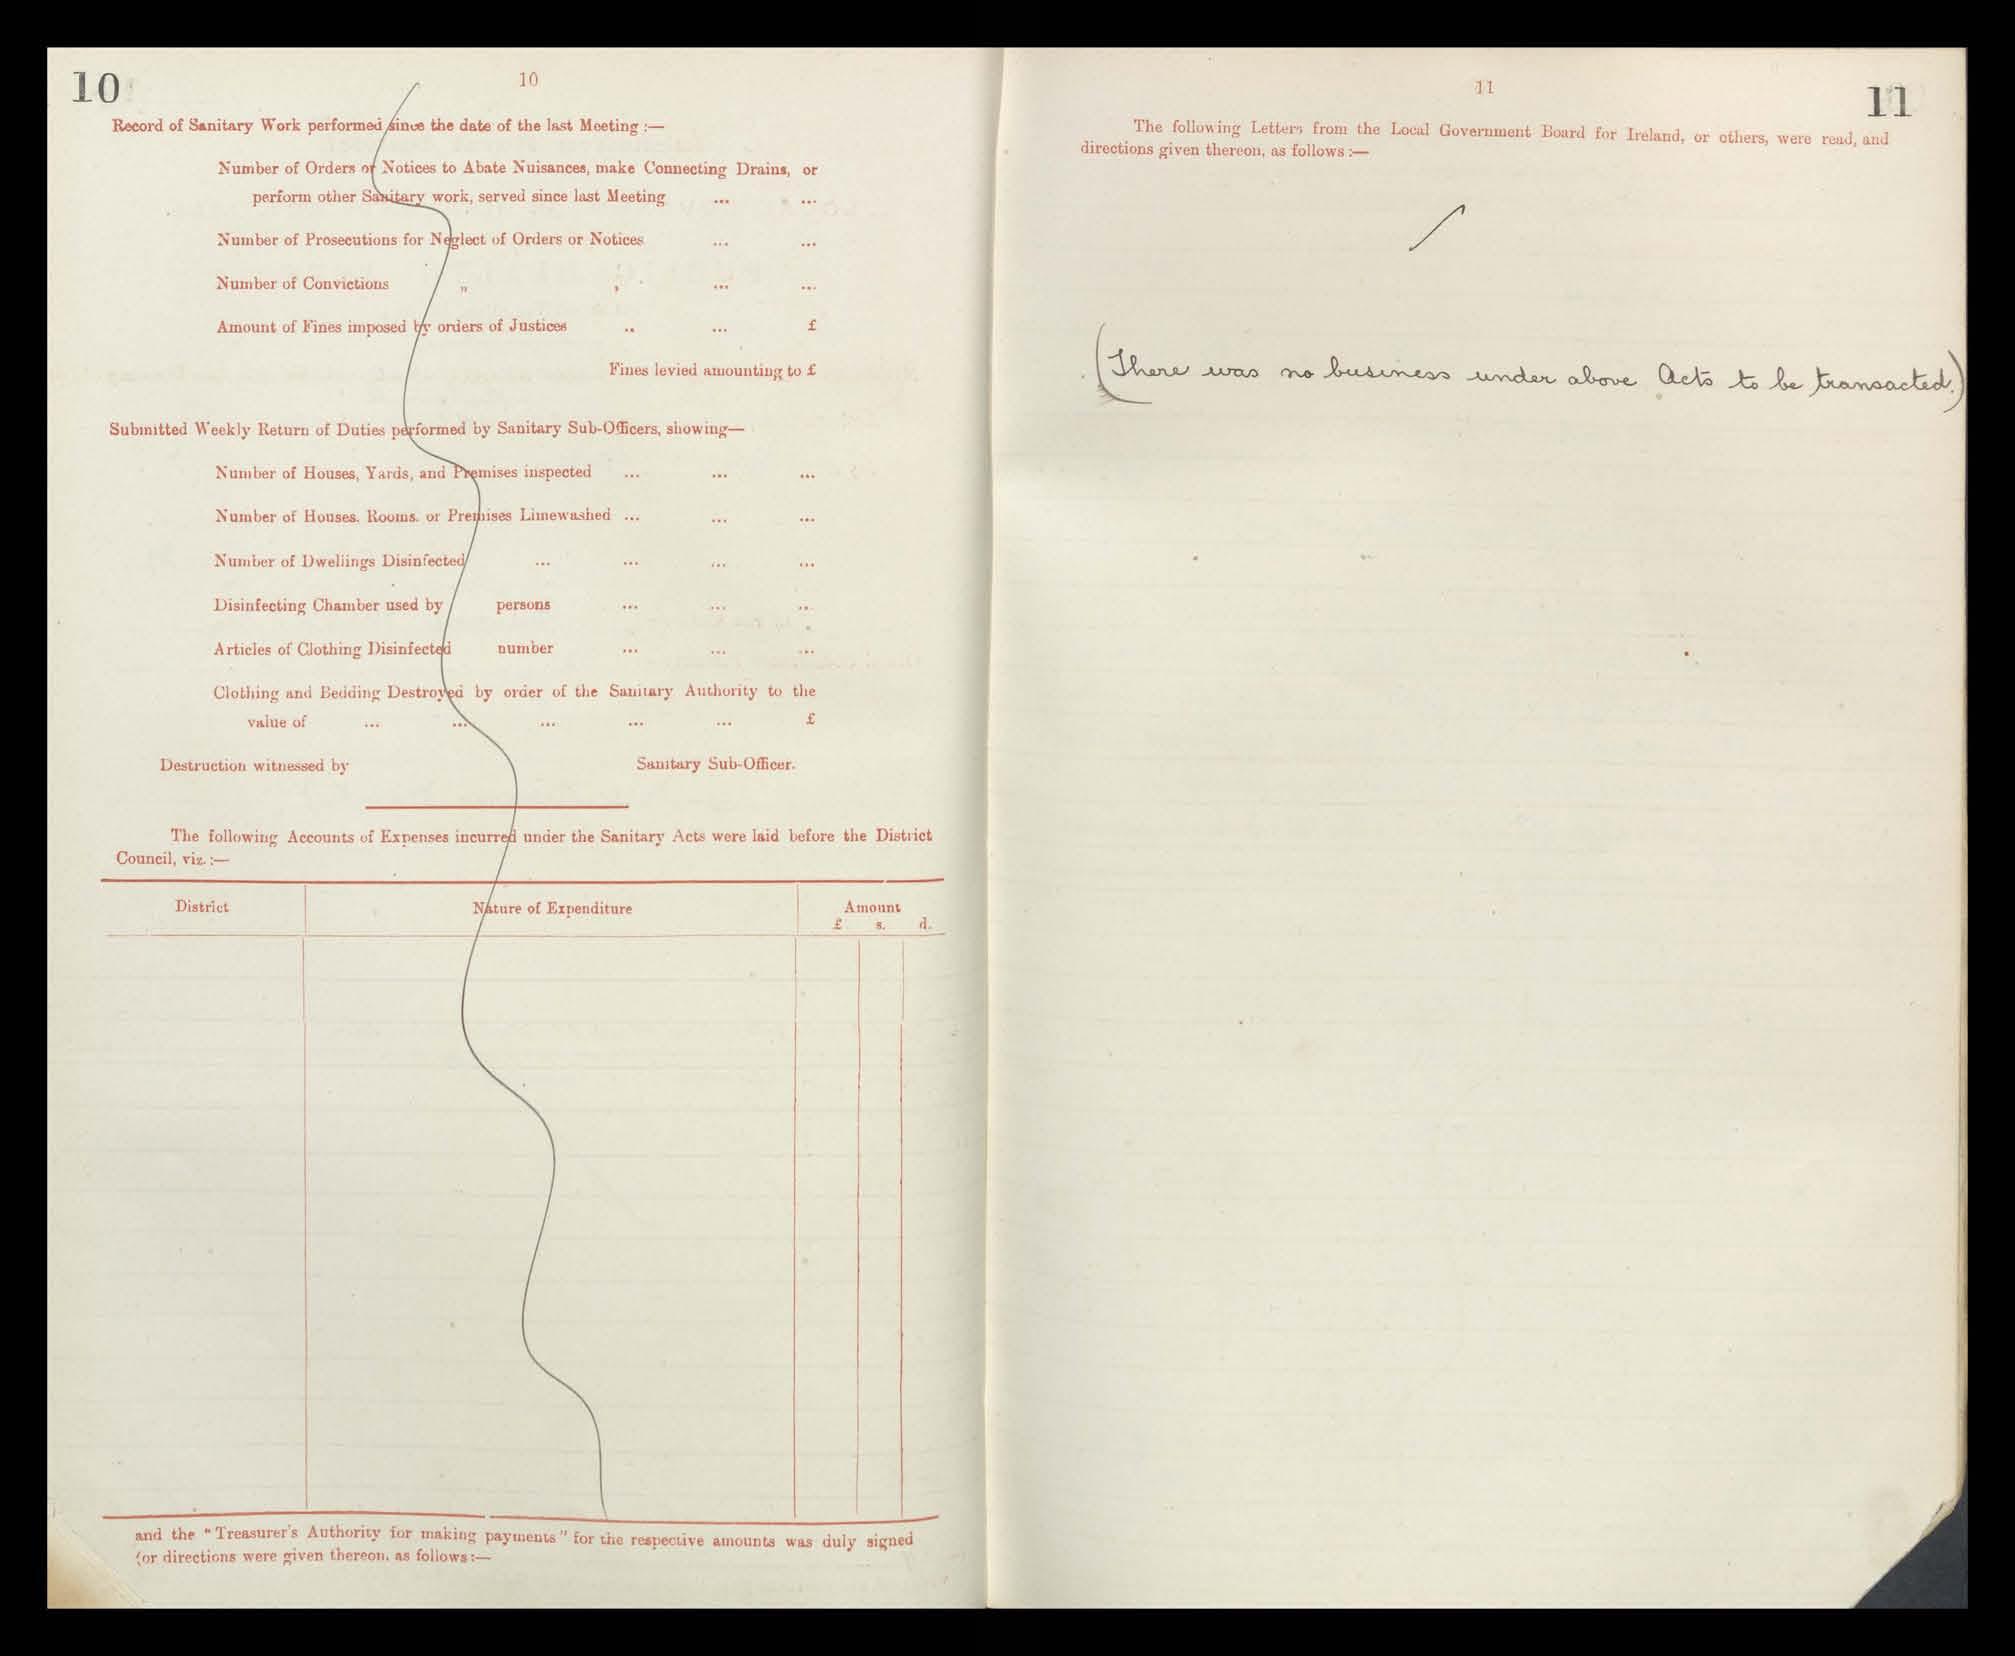 10
10
Record of Sanitary Work performed since the date of the last Meeting :—
Number of Orders or Notices to Abate Nuisances, make Connecting Drains, or
perform other Sanitary work, served since last Meeting ... ...
Number of Prosecutions for Neglect of Orders or Notices ... ...
Number of Convictions „ , ... ...
Amount of Fines imposed by orders of Justices .. ... £
Fines levied amounting to £
Submitted Weekly Return of Duties performed by Sanitary Sub-Officers, showing—
Number of Houses, Yards, and Premises inspected ... ... ...
Number of Houses. Rooms. or Premises Limewashed ... ... ...
Number of Dwellings Disinfected ... ... ... ...
Disinfecting Chamber used by persons ... ... ...
Articles of Clothing Disinfected number ... ... ...
Clothing and Bedding Destroyed by order of the Sanitary Authority to the
value of ... ... ... ... ... £
Destruction witnessed by Sanitary Sub-Officer.
The following Accounts of Expenses incurred under the Sanitary Acts were laid before the District
Council, viz. :—
District Nature of Expenditure Amount
£ s. d.
and the "Treasurer's Authority for making payments" for the respective amounts was duly signed
(or directions were given thereon, as follows :—
11
11
The following Letters from the Local Government Board for Ireland, or others, were read, and
directions given thereon, as follows :—
(There was no business under above Acts to be transacted.)